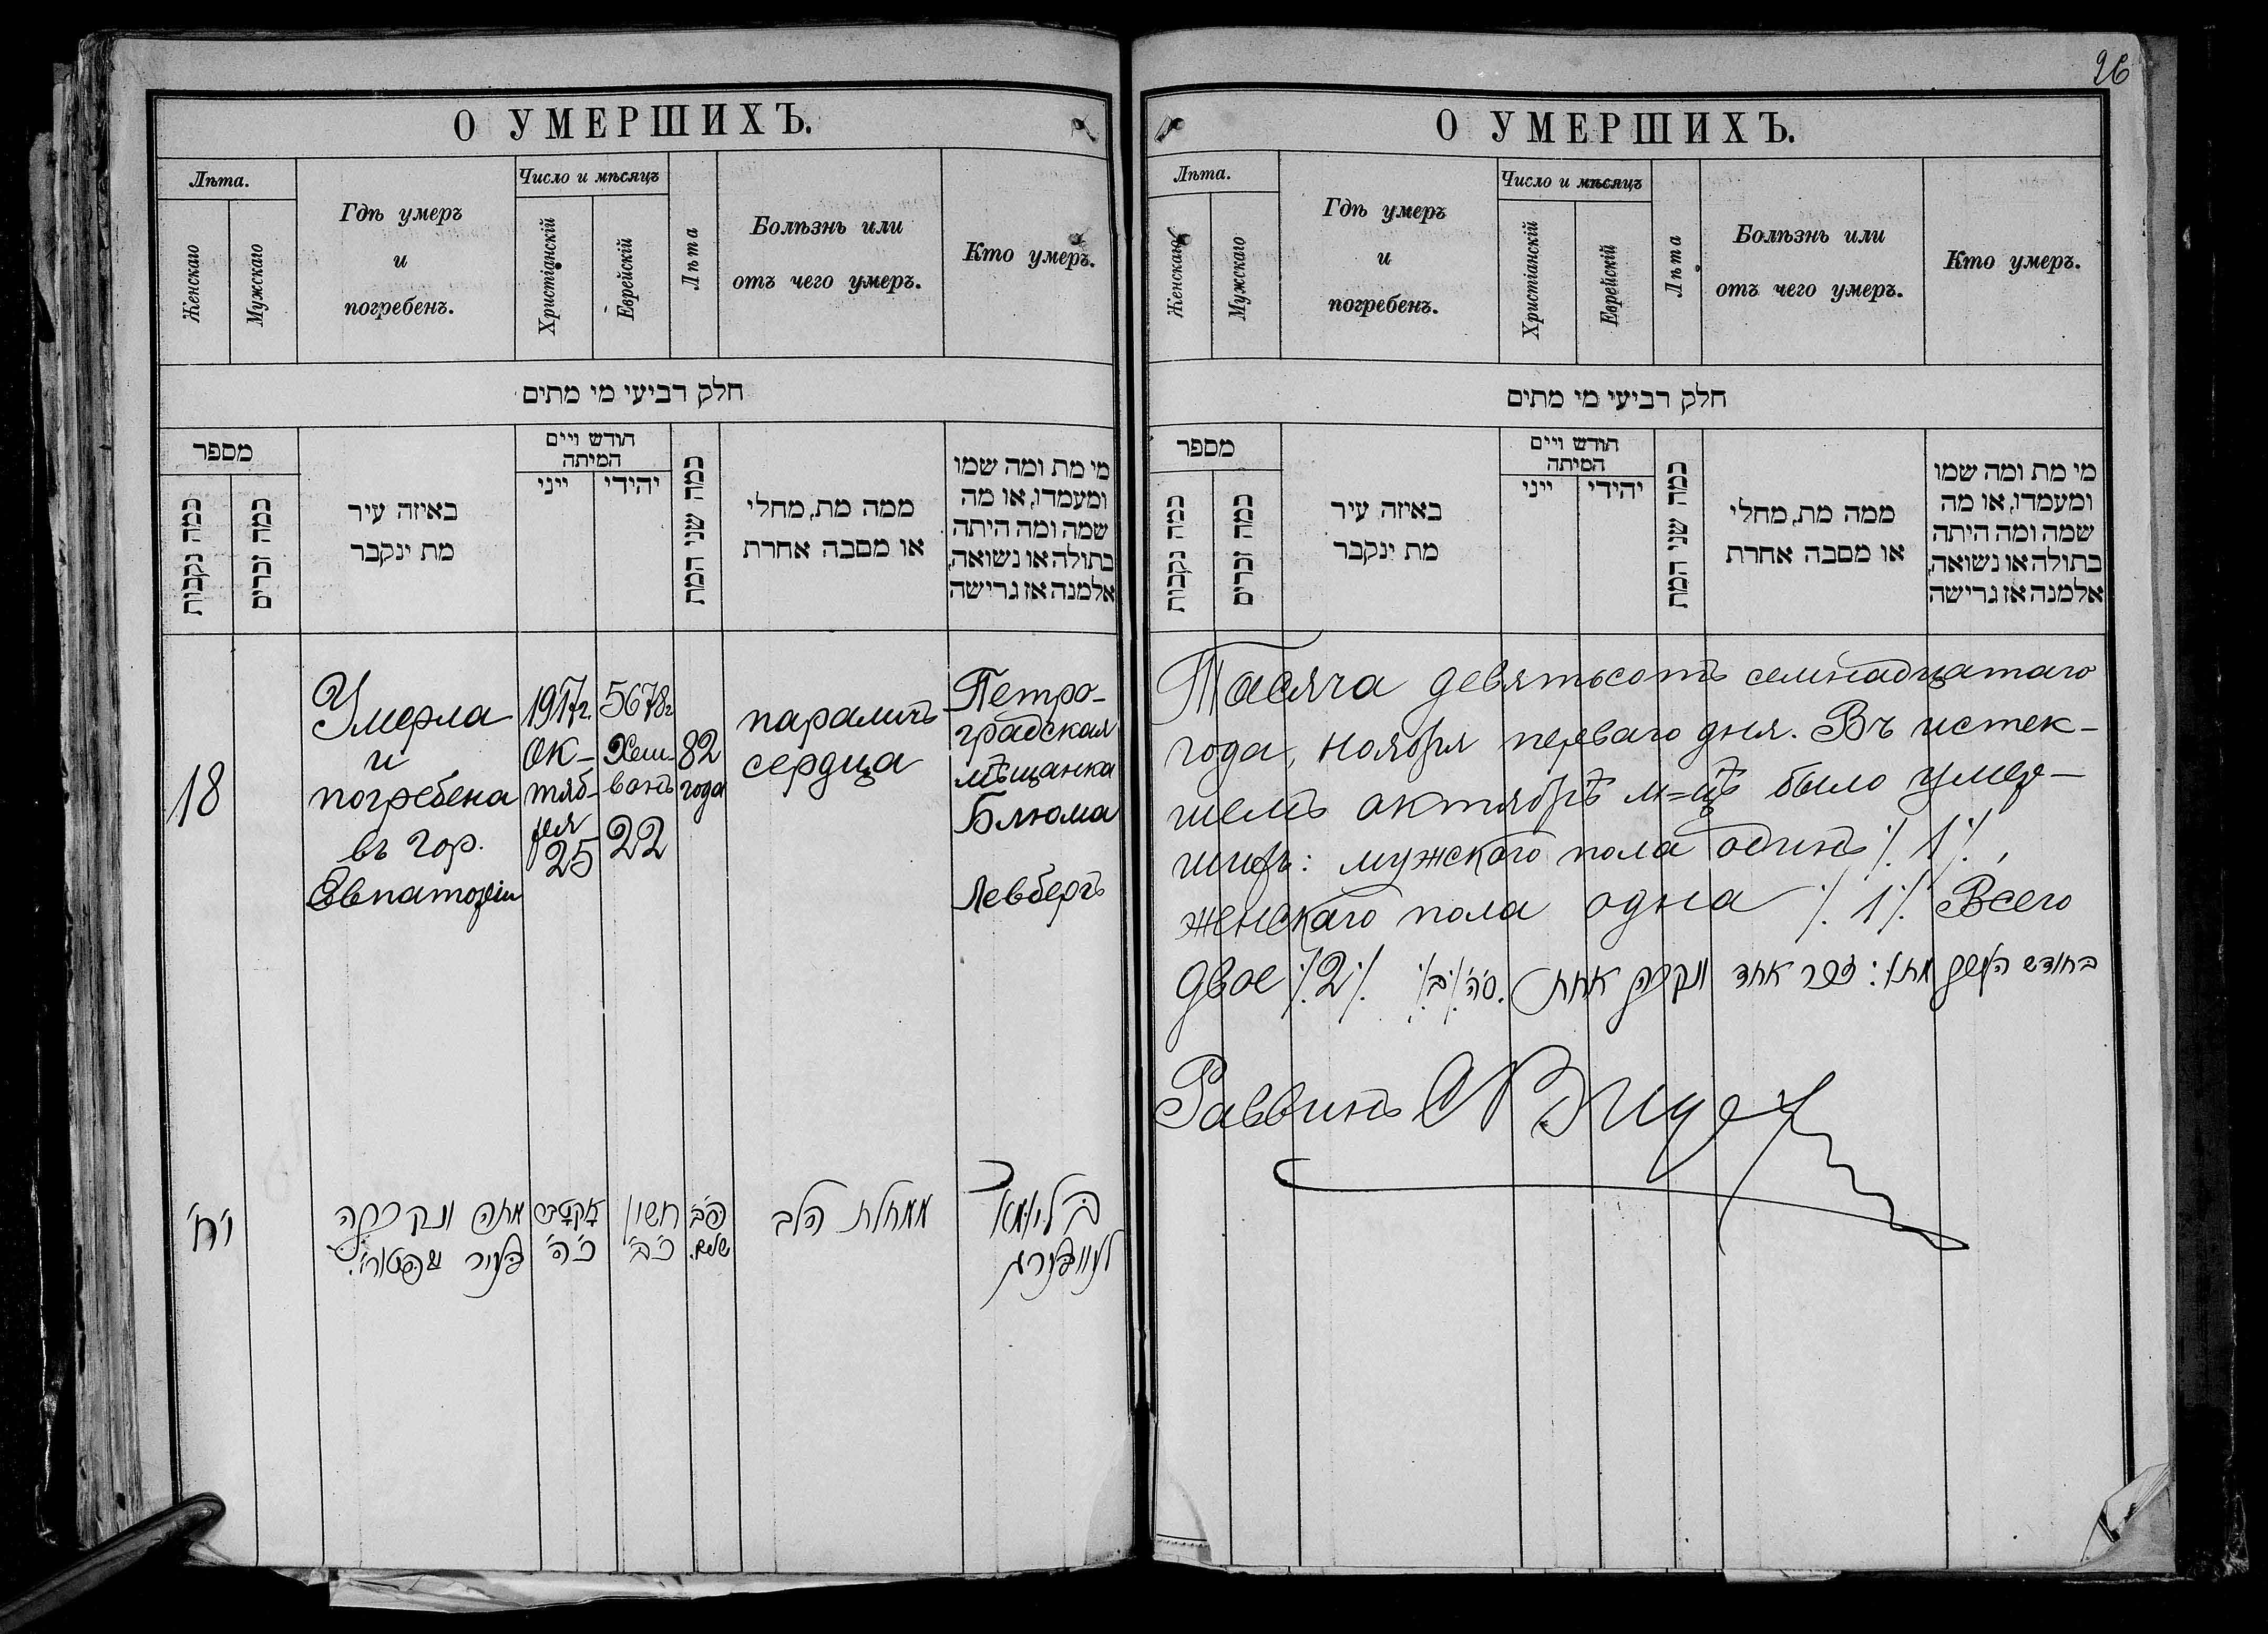 О УМЕРШИХЪ.
Лѣта.
Женскаго
Мужскаго
Гдѣ умеръ
и
погребенъ.
Число и мѣсяцъ
Христіанскій
Еврейскій
Лѣта
Болѣзнь или
отъ чего умеръ.
Кто умеръ.
חלק רביעי מי מתים
מספר
כמה נקבות
כמה זכרים
באיזה עיר
מת ינקבר
חודש ויים
המיתה
ייני
יהידי
כמה שני המת
ממה מת, מחלי
או מסבה אחרת
מי מת ומה שמו
ומעמדו, או מה
שמה ומה היתה
בתולה או נשואה,
אלמנה אז גרישה
18
Умерла
и
погребена
въ гор.
Евпаторіи
1917г.
ок-
тяб-
ря
25
5678г
Хеш-
ванъ
22
82
года
параличъ
сердца
Петро-
градская
мѣщанка
Блюма
Левбергъ
י"ח
מתה ונקברה
בעיר
אקטבר
כ"ה
חשון
כ"ב
פ"ב
שנים.
ממחלת הלב
בליומא
לעוובערג
26
О УМЕРШИХЪ.
Лѣта.
Женскаго
Мужскаго
Гдѣ умеръ
и
погребенъ.
Число и мѣсяцъ
Христіанскій
Еврейскій
Лѣта
Болѣзнь или
отъ чего умеръ.
Кто умеръ.
חלק רביעי מי מתים
מספר
כמה נקבות
כמה זכרים
באיזה עיר
מת ינקבר
חודש ויים
המיתה
ייני
יהידי
כמה שני המת
ממה מת, מחלי
או מסבה אחרת
מי מת ומה שמו
ומעמדו, או מה
שמה ומה היתה
בתולה או נשואה,
אלמנה אז גרישה
Тысяча девятьсотъ семнадцатаго
года, ноября перваго дня. Въ истек-
шемъ октябрѣ м=цѣ было умер-
шихъ: мужскаго пола одинъ ٪ 1 ٪,
женскаго пола одна ٪ 1 ٪ Всего
двое ٪ 2 ٪ בחודש העבר מתו: זכר אחד ונקבה אחת. ס"ה ٪ ב ٪
Раввинъ